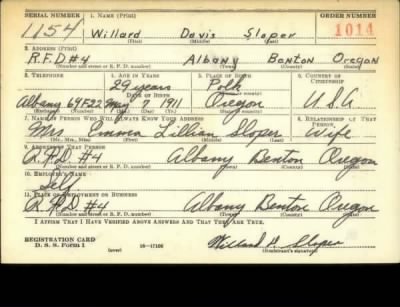 SERIAL NUMBER 1. NAME (Print) ORDER NUMBER
1154 Willard Davis Sloper 1014
(First) (Middle) (Last)
2. ADDRESS (Print)
R.F.D #4 Albany Benton Oregon
(Number and street or R. F. D. number) (Town) (County) (State)
3. TELEPHONE 4. AGE IN YEARS 5. PLACE OF BIRTH 6. COUNTRY OF CITIZENSHIP
29 years Polk
DATE OF BIRTH
Albany 69F22 May 7 1911 Oregon U.S.A
7. NAME OF PERSON WHO WILL ALWAYS KNOW YOUR ADDRESS 8. RELATIONSHIP OF THAT PERSON
Mrs. Emma Lillian Sloper Wife
9. ADDRESS OF THAT PERSON
R.F.D #4 Albany Benton Oregon
(Number and street or R. F. D. number) (Town) (County) (State)
10. EMPLOYER'S NAME
Self
11. PLACE OF EMPLOYMENT OR BUSINESS
R.F.D #4 Albany Benton Oregon
(Number and street or R. F. D. number) (Town) (County) (State)
I AFFIRM THAT I HAVE VERIFIED ABOVE ANSWERS AND THAT THEY ARE TRUE.
REGISTRATION CARD
D. S. S. Form 1 (over) 16-17105 Willard D. Sloper
(Registrant's signature)